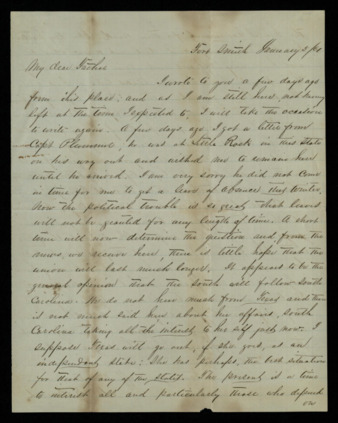 Fort Smith January 3/61
My dear Father
I wrote to you a few days ago
from this place, and as I am still here, not having
left at the time I expected to, I will take the occasion
to write again. A few days ago I got a letter from
Capt Plummer, he was at Little Rock in this State
on his way out and wished me to remain here
until he arrived. I am very sorry he did not come
in time for me to get a leave of absence this winter,
Now the political trouble is so great, that leaves
will not be granted for any length of time. A short
time will now determine the question and from the
news, we receive here, there is little hope that the
union will last much longer. It appears to be the
general opinion that the South will follow South
Carolina. We do not hear much from Texas and there
is not much said here about her affairs, South
Carolina taking all the interest to her self just now. I
suppose Texas will go out, if she goes, as an
independent state. She has perhaps, the best situation
for that of any of the States. The present is a time
to interest all and particularly those who depend
on